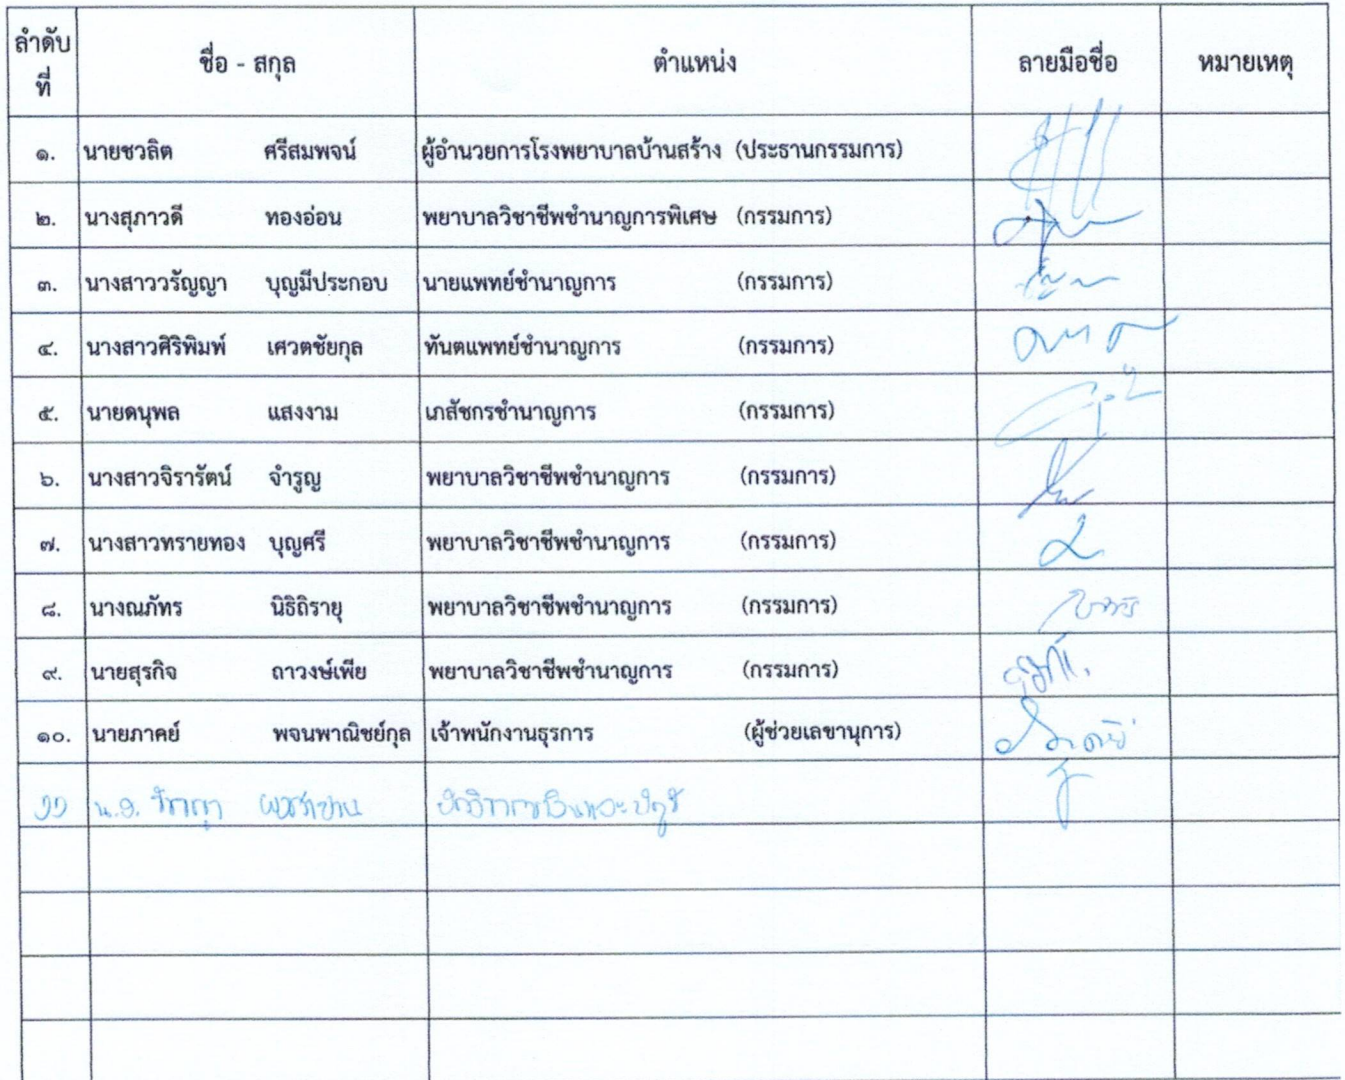 ลำดับที่ ชื่อ - สกุล ตำแหน่ง ลายมือชื่อ หมายเหตุ
๑. นายชวลิต ศรีสมพจน์ ผู้อำนวยการโรงพยาบาลบ้านสร้าง (ประธานกรรมการ)
๒. นางสุภาวดี ทองอ่อน พยาบาลวิชาชีพชำนาญการพิเศษ (กรรมการ)
๓. นางสาววรัญญา บุญมีประกอบ นายแพทย์ชำนาญการ (กรรมการ)
๔. นางสาวศิริพิมพ์ เศวตชัยกุล ทันตแพทย์ชำนาญการ (กรรมการ)
๕. นายดนุพล แสงงาม เภสัชกรชำนาญการ (กรรมการ)
๖. นางสาวจิรารัตน์ จำรูญ พยาบาลวิชาชีพชำนาญการ (กรรมการ)
๗. นางสาวทรายทอง บุญศรี พยาบาลวิชาชีพชำนาญการ (กรรมการ)
๘. นางณภัทร นิธิถิรายุ พยาบาลวิชาชีพชำนาญการ (กรรมการ)
๙. นายสุรกิจ ถาวงษ์เพีย พยาบาลวิชาชีพชำนาญการ (กรรมการ)
๑๐. นายภาคย์ พจนพาณิชย์กุล เจ้าพนักงานธุรการ (ผู้ช่วยเลขานุการ)
๑๑ น.ส.